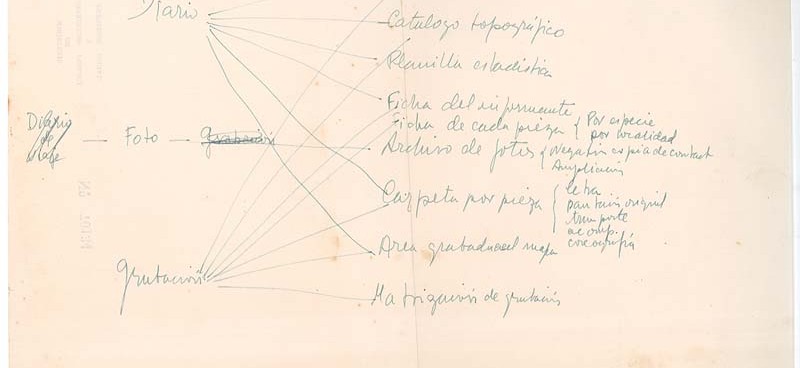 Diario
Catalogo topográfico
Planilla estadistica
Ficha del informante
Ficha de cada pieza { Por especie
por localidad
Diario de viaje — Foto — Grabación
Archivo de fotos { Negativ copia de contact
Ampliación
Carpeta por pieza { letra
pauta orixinal
transporte
acomp.
coreografía
Area grabada en el mapa
Grabación
Matrización de grabación